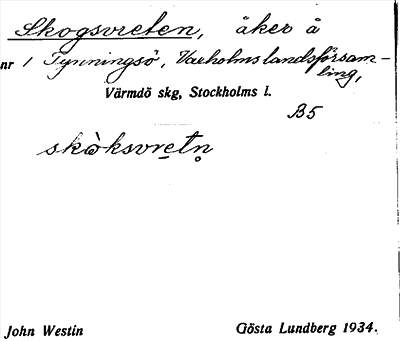 Skogsvreten, åker å
nr 1 Tynningsö, Vaxholms landsförsam-
ling,
Värmdö skg, Stockholms l.
B5
skòksvretn̥
John Westin
Gösta Lundberg 1934.